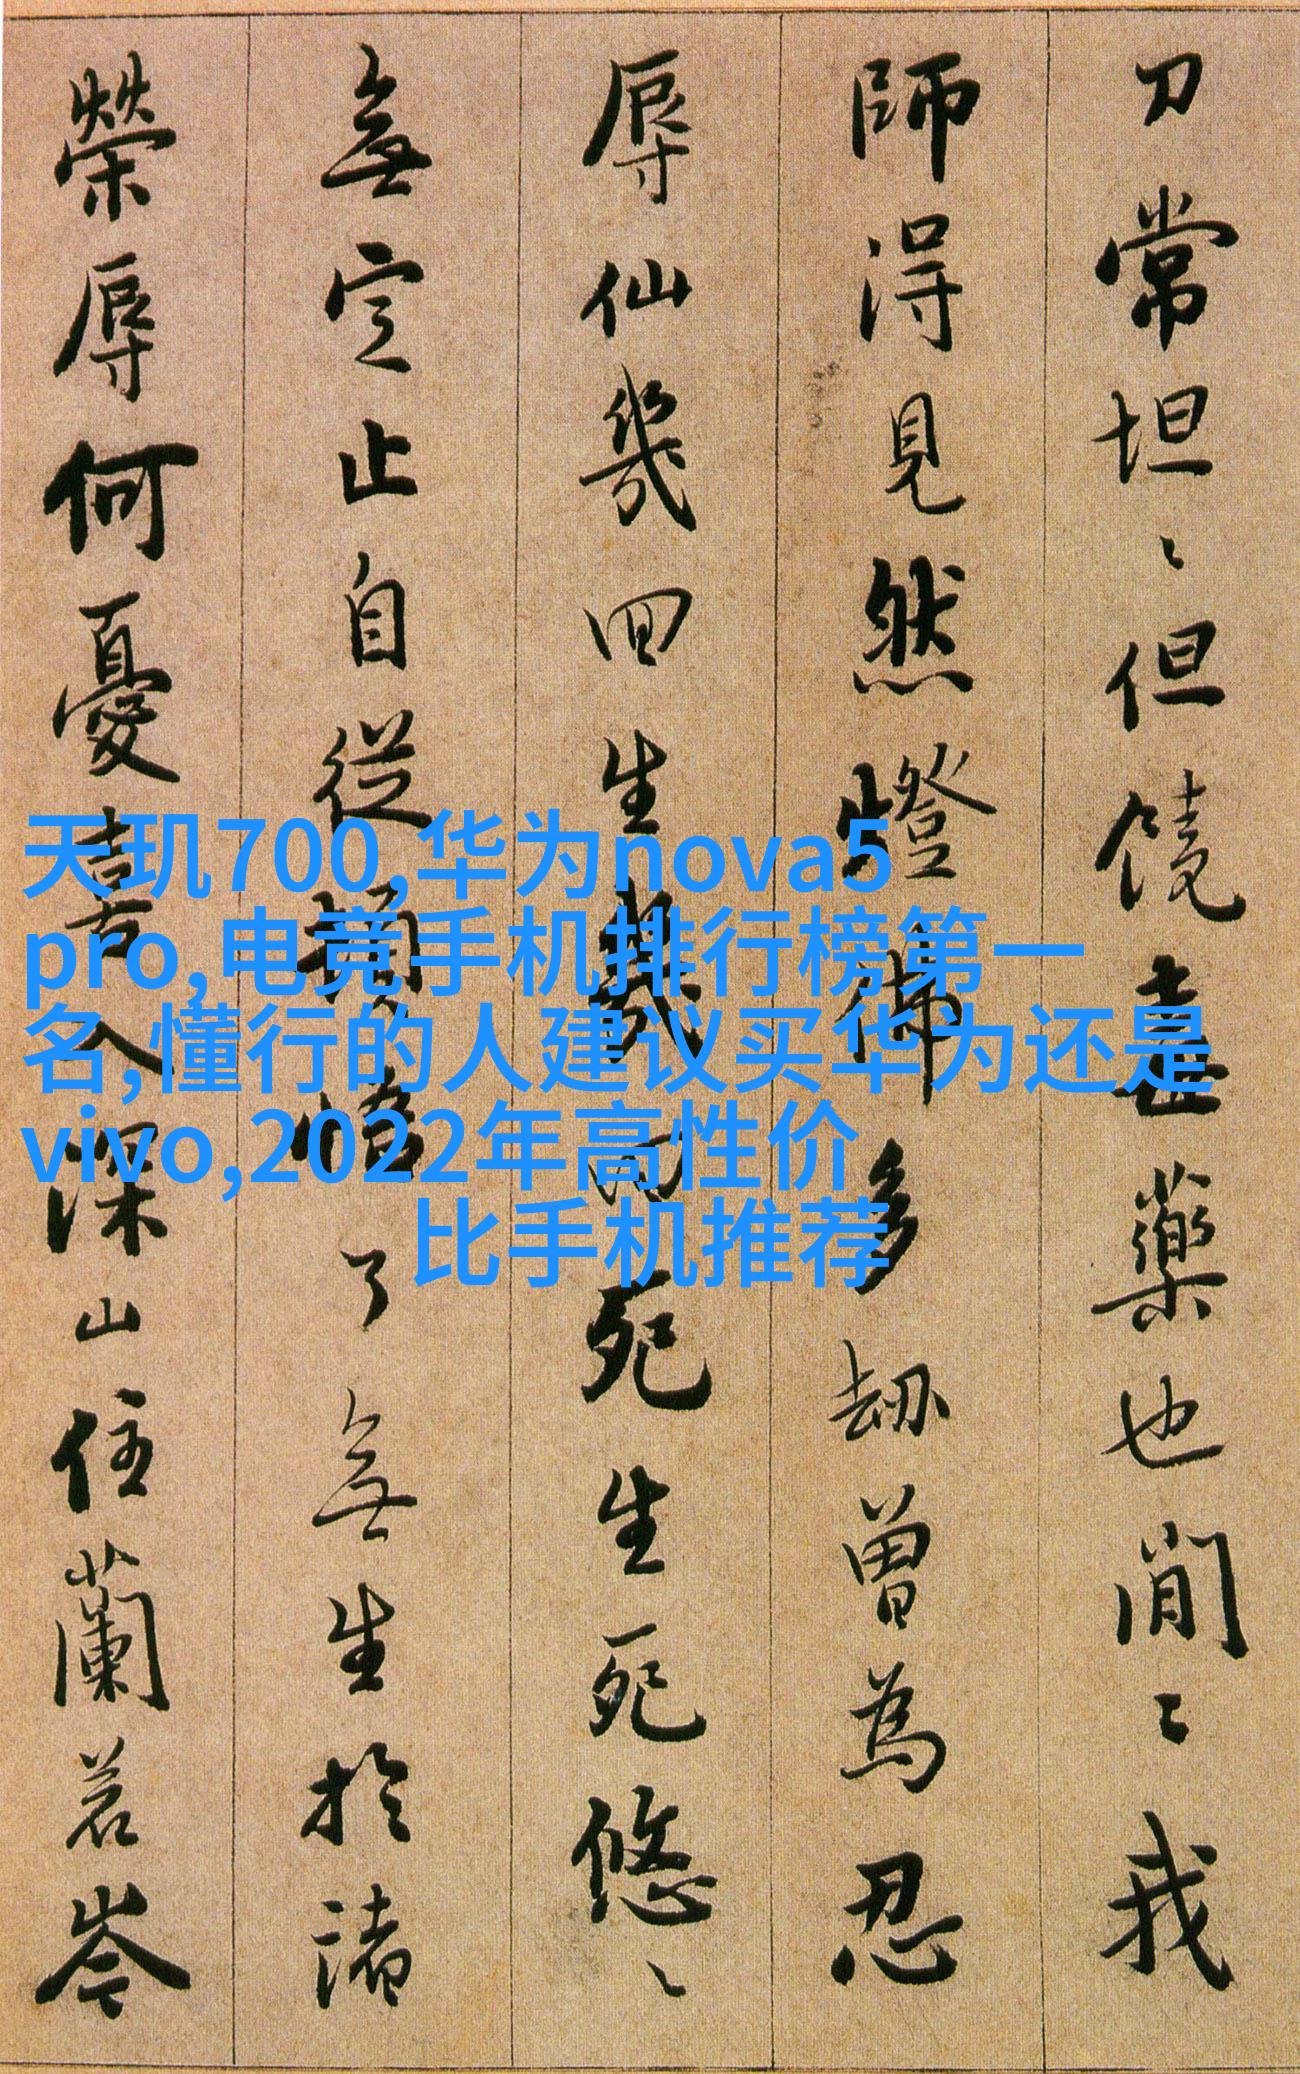 刀常坦〻但饒毒藥也間〻我
師得見然燈佛多劫曾為忍
辱仙幾回生幾回死生死悠〻
無定止自從頓悟了無生於諸
榮辱何憂喜入深山住蘭若岑
天玑700,华为nova5
pro,电竞手机排行榜第一
名,懂行的人建议买华为还是
vivo,2022年高性价
比手机推荐